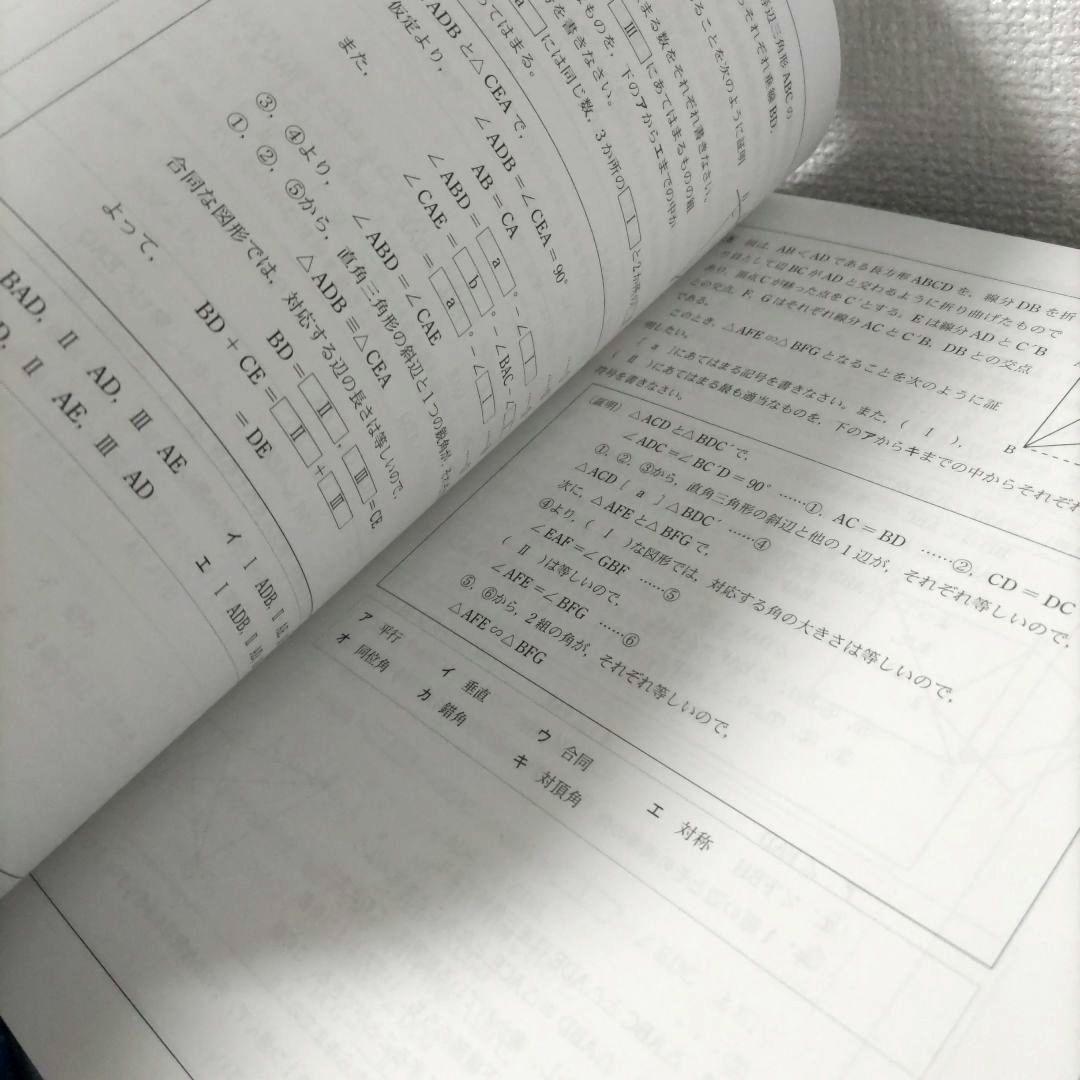 等辺三角形 ABC の
らそれぞれ垂線 BD,
ることを次のように証明
まる数をそれぞれ書きなさい。
Ⅲ にあてはまるものの組
ものを、下のアからエまでの中か
を書きなさい。
a には同じ数，3か所の Ⅰ と2か所の
ってはまる。
ADB と △CEA で，
仮定より， ∠ADB＝∠CEA＝90°
AB＝CA
また， ∠ABD＝ a °－∠ Ⅰ
∠CAE＝ b °－∠BAC－∠
＝ a °－∠ Ⅰ
③，④より， ∠ABD＝∠CAE
①，②，⑤から，直角三角形の斜辺と1つの鋭角が，
△ADB≡△CEA
合同な図形では，対応する辺の長さは等しいので，
BD＝ Ⅱ ， Ⅲ ＝CE
よって， BD＋CE＝ Ⅱ ＋ Ⅲ
＝DE
BAD, Ⅱ AD, Ⅲ AE
D, Ⅱ AE, Ⅲ AD
イ Ⅰ ADB, Ⅱ
エ Ⅰ ADB, Ⅱ
図は，AB＜AD である長方形 ABCD を，線分 DB を折
り目として辺 BC が AD と交わるように折り曲げたもので
あり，頂点 C が移った点を C´とする。E は線分 AD と C´B
との交点，F，G はそれぞれ線分 AC と C´B，DB との交点
である。
このとき，△AFE∽△BFG となることを次のように証
明したい。
［ a ］にあてはまる記号を書きなさい。また，（ Ⅰ ），
（ Ⅱ ）にあてはまる最も適当なものを，下のアからキまでの中からそれぞれ
符号を書きなさい。
B
（証明） △ACD と△BDC´で，
∠ADC＝∠BC´D＝90° ……①，AC＝BD ……②，CD＝DC
①，②，③から，直角三角形の斜辺と他の1辺が，それぞれ等しいので，
△ACD［ a ］△BDC´ ……④
次に，△AFE と△BFG で，
④より，（ Ⅰ ）な図形では，対応する角の大きさは等しいので，
∠EAF＝∠GBF ……⑤
（ Ⅱ ）は等しいので，
∠AFE＝∠BFG ……⑥
⑤，⑥から，2組の角が，それぞれ等しいので，
△AFE∽△BFG
ア 平行 イ 垂直 ウ 合同 エ 対称
オ 同位角 カ 錯角 キ 対頂角